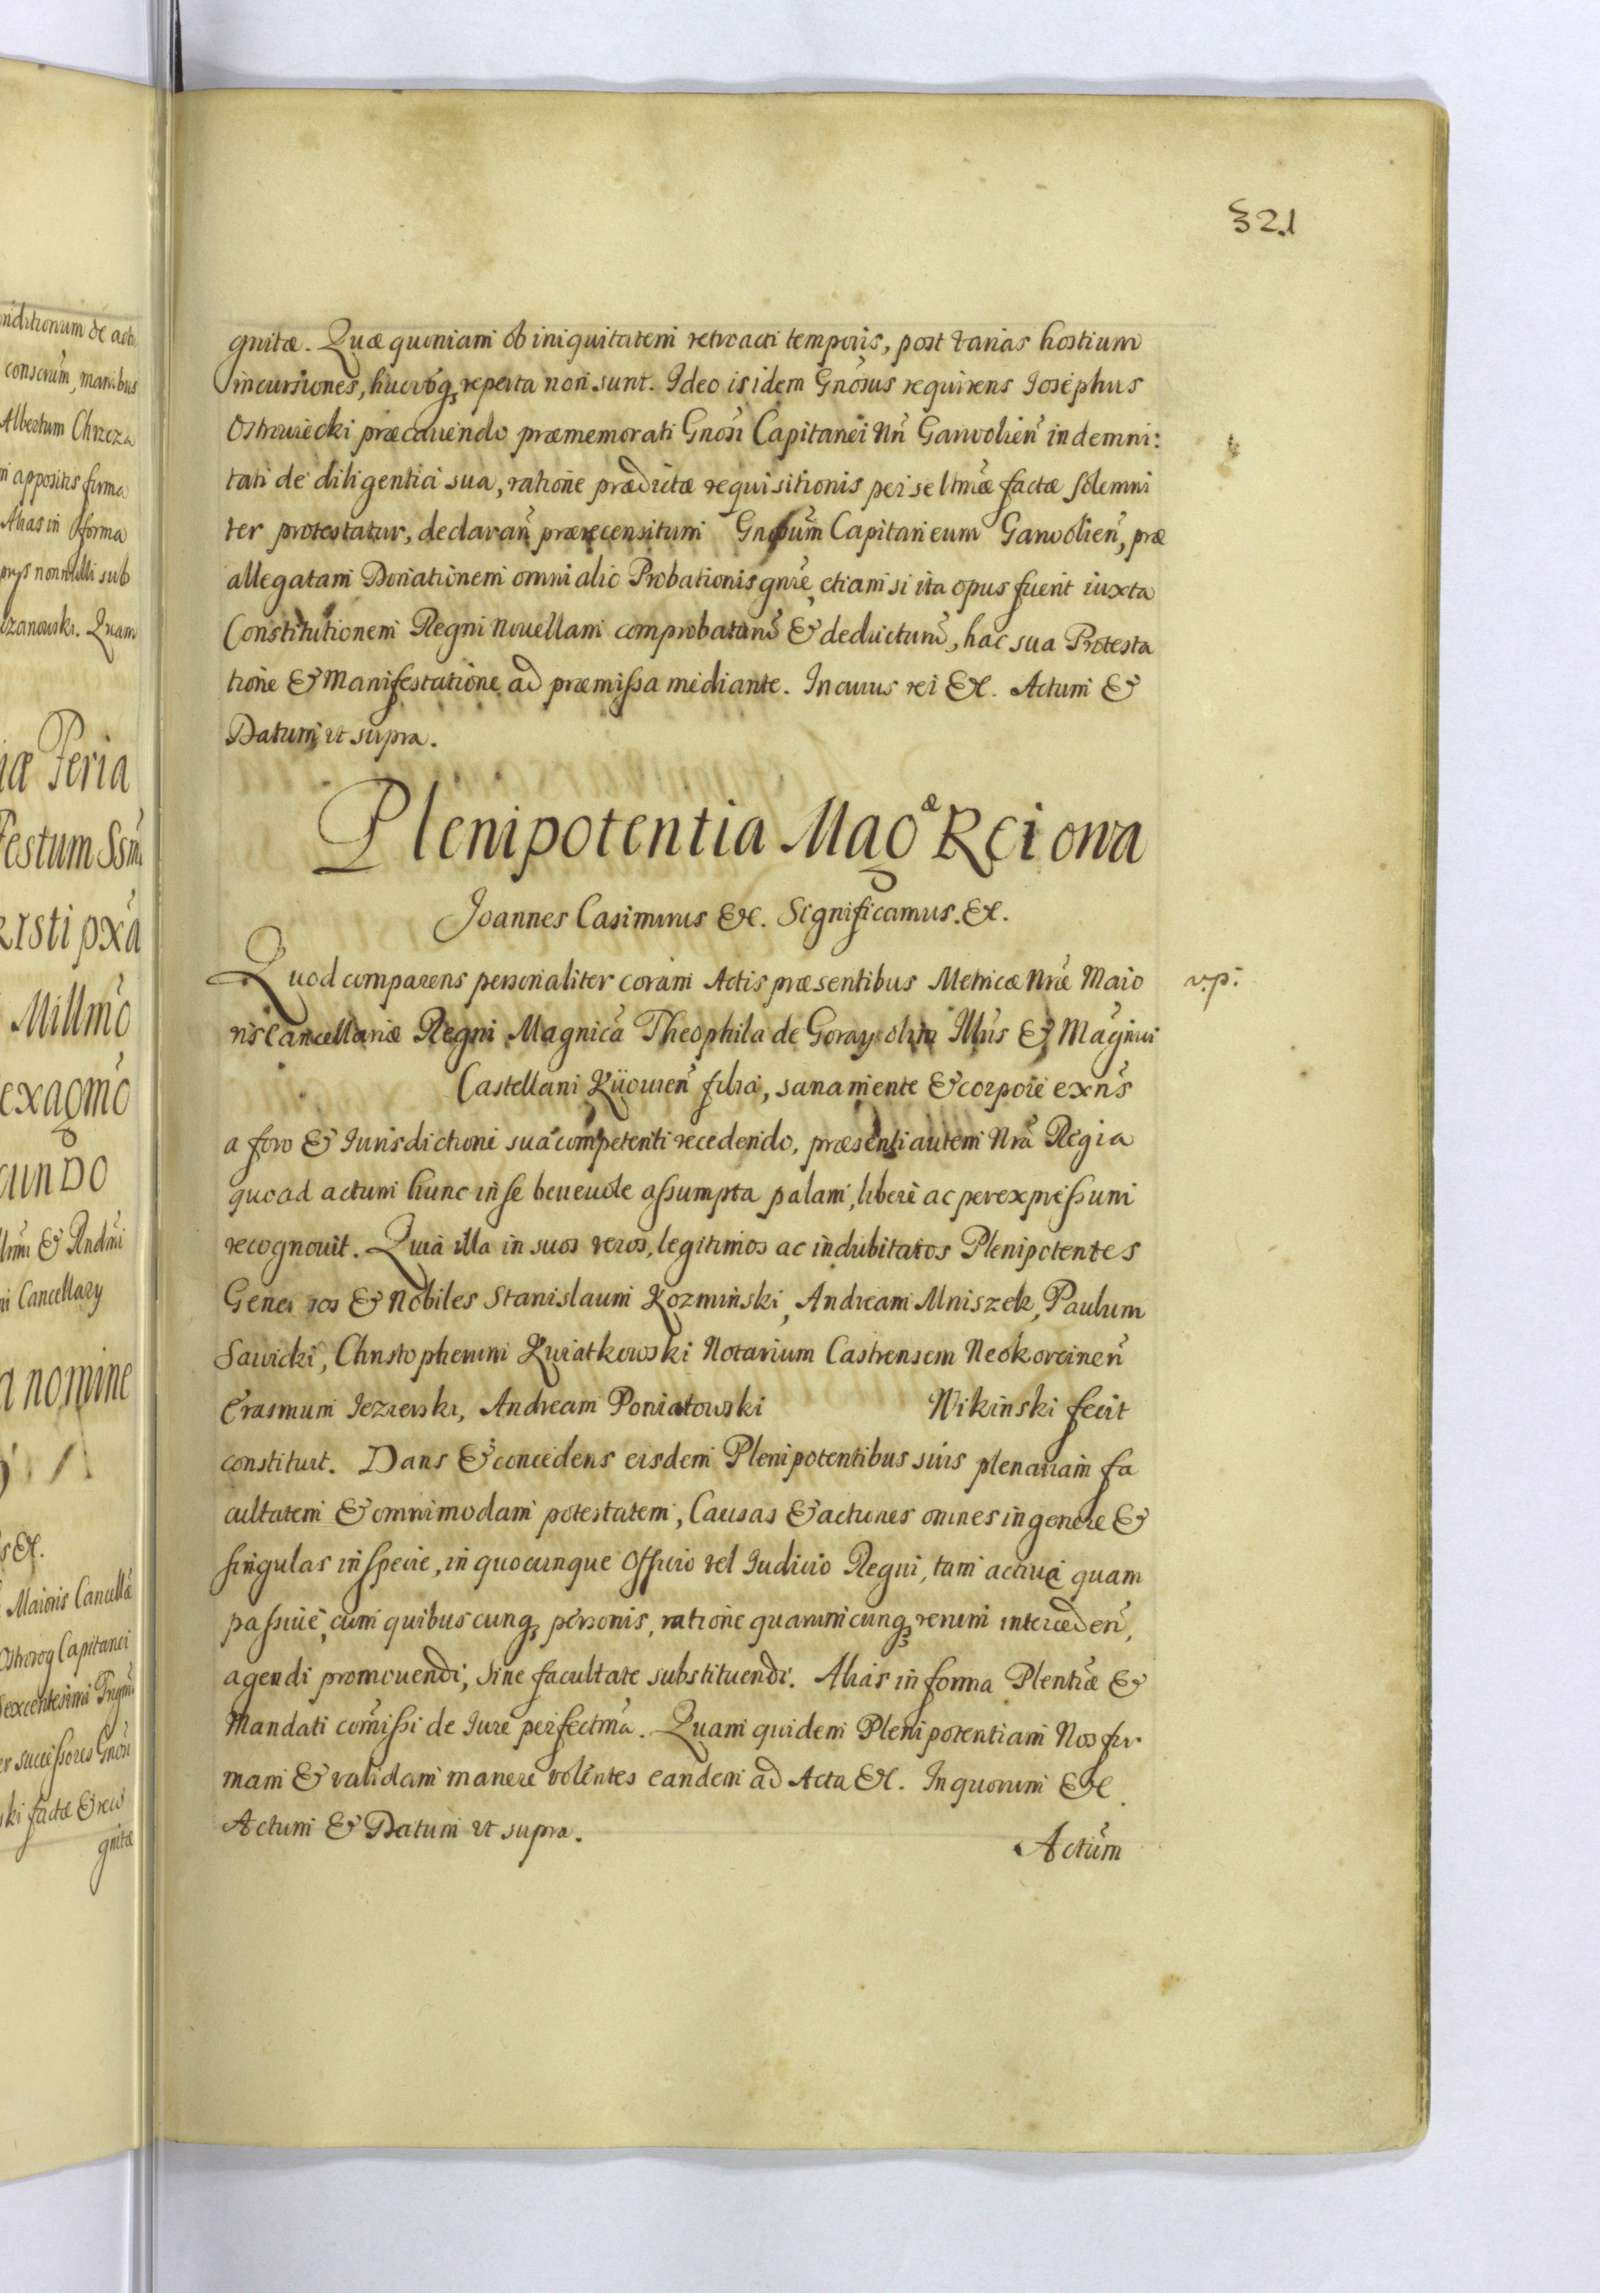 321
gnitæ. Quæ quoniam ob iniquitatem retroacti temporis, post varias hostium
incursiones, hucusq; reperta non sunt. Ideo isidem Gnosus requirens Iosephus
præcauendo præmemorati Gnosi Capitanei Nri Garwolien indemni:
tati de diligentia sua, ratione prædictæ requisitionis per se ltmæ factæ solemni
ter protestatur, declaran prærecensitum Gnosum Capitaneum Garwolien, præ
allegatam Donationem omni alio Probationis gnre, etiam si ita opus fuerit iuxta
Constitutionem Regni Nouellam comprobatum & deducturum, hac sua Protesta
tione & Manifestatione ad præmissa mediante. In cuius rei &c. Actum &
Datum ut supra.
Plenipotentia Magæ Reiowa
Joannes Casimirus &c. Significamus. &c.
Quod comparens personaliter coram Actis præsentibus Metricæ Nræ Maio
v.p.
ris Cancellariæ Regni Magnica Theophila de Goray olim Illris & Magnici
Castellani Kiiouien filia, sana mente & corpore exns
a foro & Iurisdictioni sua competenti recedendo, præsenti autem Nra Regia
quoad actum hunc in se beneuole assumpta palam, libere ac per expressum
recognouit. Quia illa in suos veros, legitimos ac indubitatos Plenipotentes
Generosos & Nobiles Stanislaum Kozminski, Andream Mniszek, Paulum
Sawicki, Christopherum Kwiatkowski Notarium Castrensem Neokorcinen
Erasmum Iezierski, Andream Poniatowski Wikinski fecit
constituit. Dans & concedens eisdem Plenipotentibus suis plenariam fa
cultatem & omnimodam potestatem, Causas & actiones omnes in genere &
singulas in specie, in quocunque Officio vel Iudicio Regni, tam actiue quam
passiue, cum quibuscunq; personis, ratione quarumcunq; rerum interceden,
agendi promouendi, sine facultate substituendi. Alias in forma Plentiæ &
Mandati comissi de Iure perfectma. Quam quidem Plenipotentiam Nos fir
mam & validam manere volentes eandem ad Acta &c. In quorum &c.
Actum & Datum ut supra.
Actum